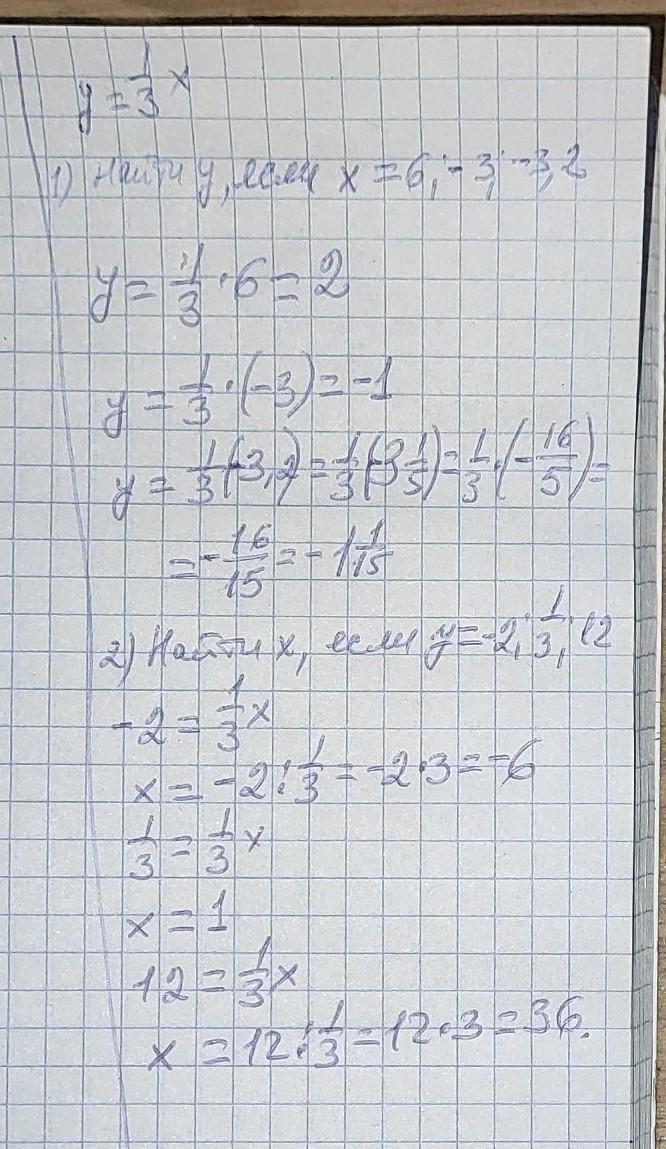 y = 1/3 x
1) Найти y, если x = 6; -3; -3,2
y = 1/3 · 6 = 2
y = 1/3 · (-3) = -1
y = 1/3 (-3,2) = 1/3 (-3 1/5) = 1/3 · (-16/5) =
= -16/15 = -1 1/15
2) Найти x, если y = -2; 1/3; 12
-2 = 1/3 x
x = -2 : 1/3 = -2 · 3 = -6
1/3 = 1/3 x
x = 1
12 = 1/3 x
x = 12 : 1/3 = 12 · 3 = 36.